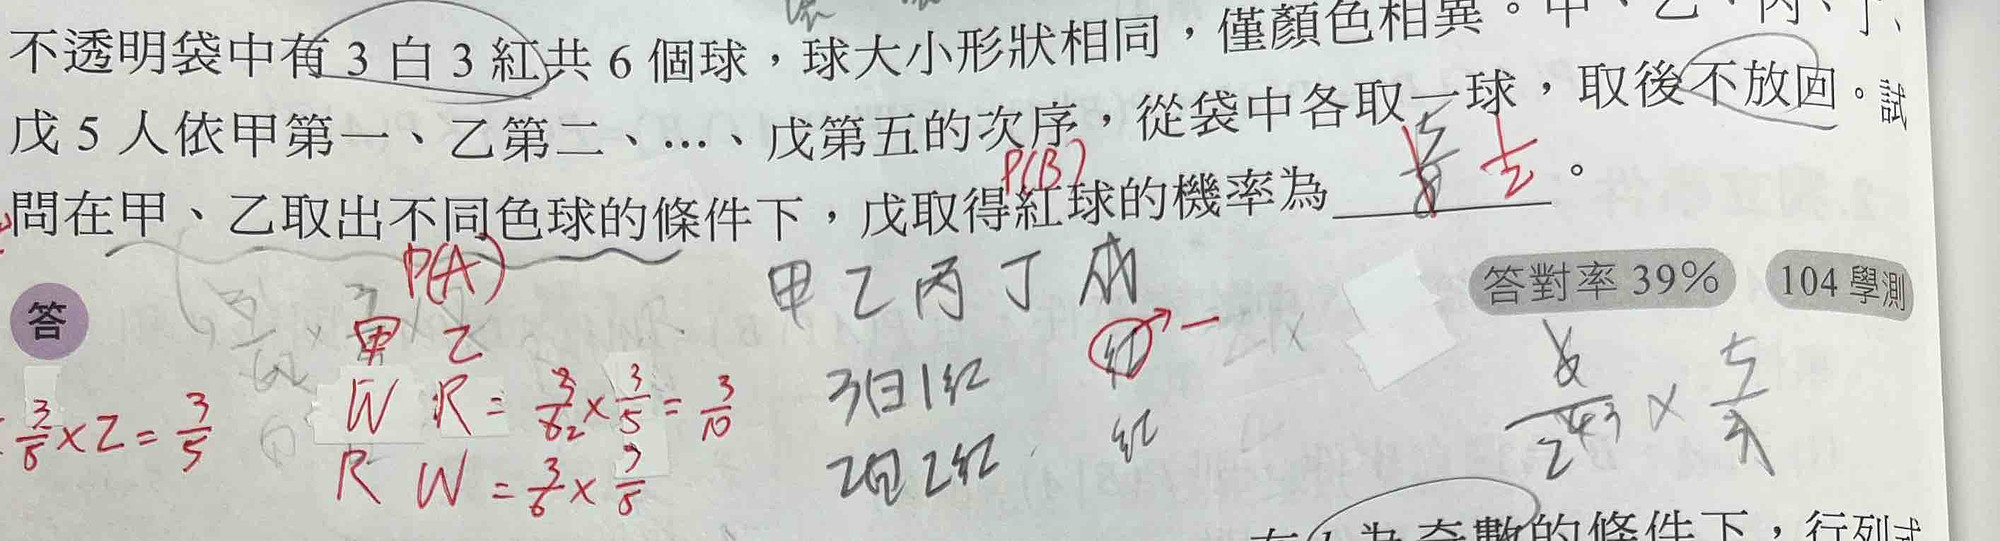 不透明袋中有 3 白 3 紅共 6 個球，球大小形狀相同，僅顏色相異。甲、乙、丙、丁、
戊 5 人依甲第一、乙第二、…、戊第五的次序，從袋中各取一球，取後不放回。試
問在甲、乙取出不同色球的條件下，戊取得紅球的機率為 1/2 。
P(B)
P(A)
甲 乙 丙 丁 戊
答對率 39% 104 學測
答
甲 乙
W R = 3/6 2 × 3/5 = 3/10
R W = 3/6 × 3/5
3/5 × 2 = 3/5
3白1紅 紅
2白2紅 紅
的條件下，行列式